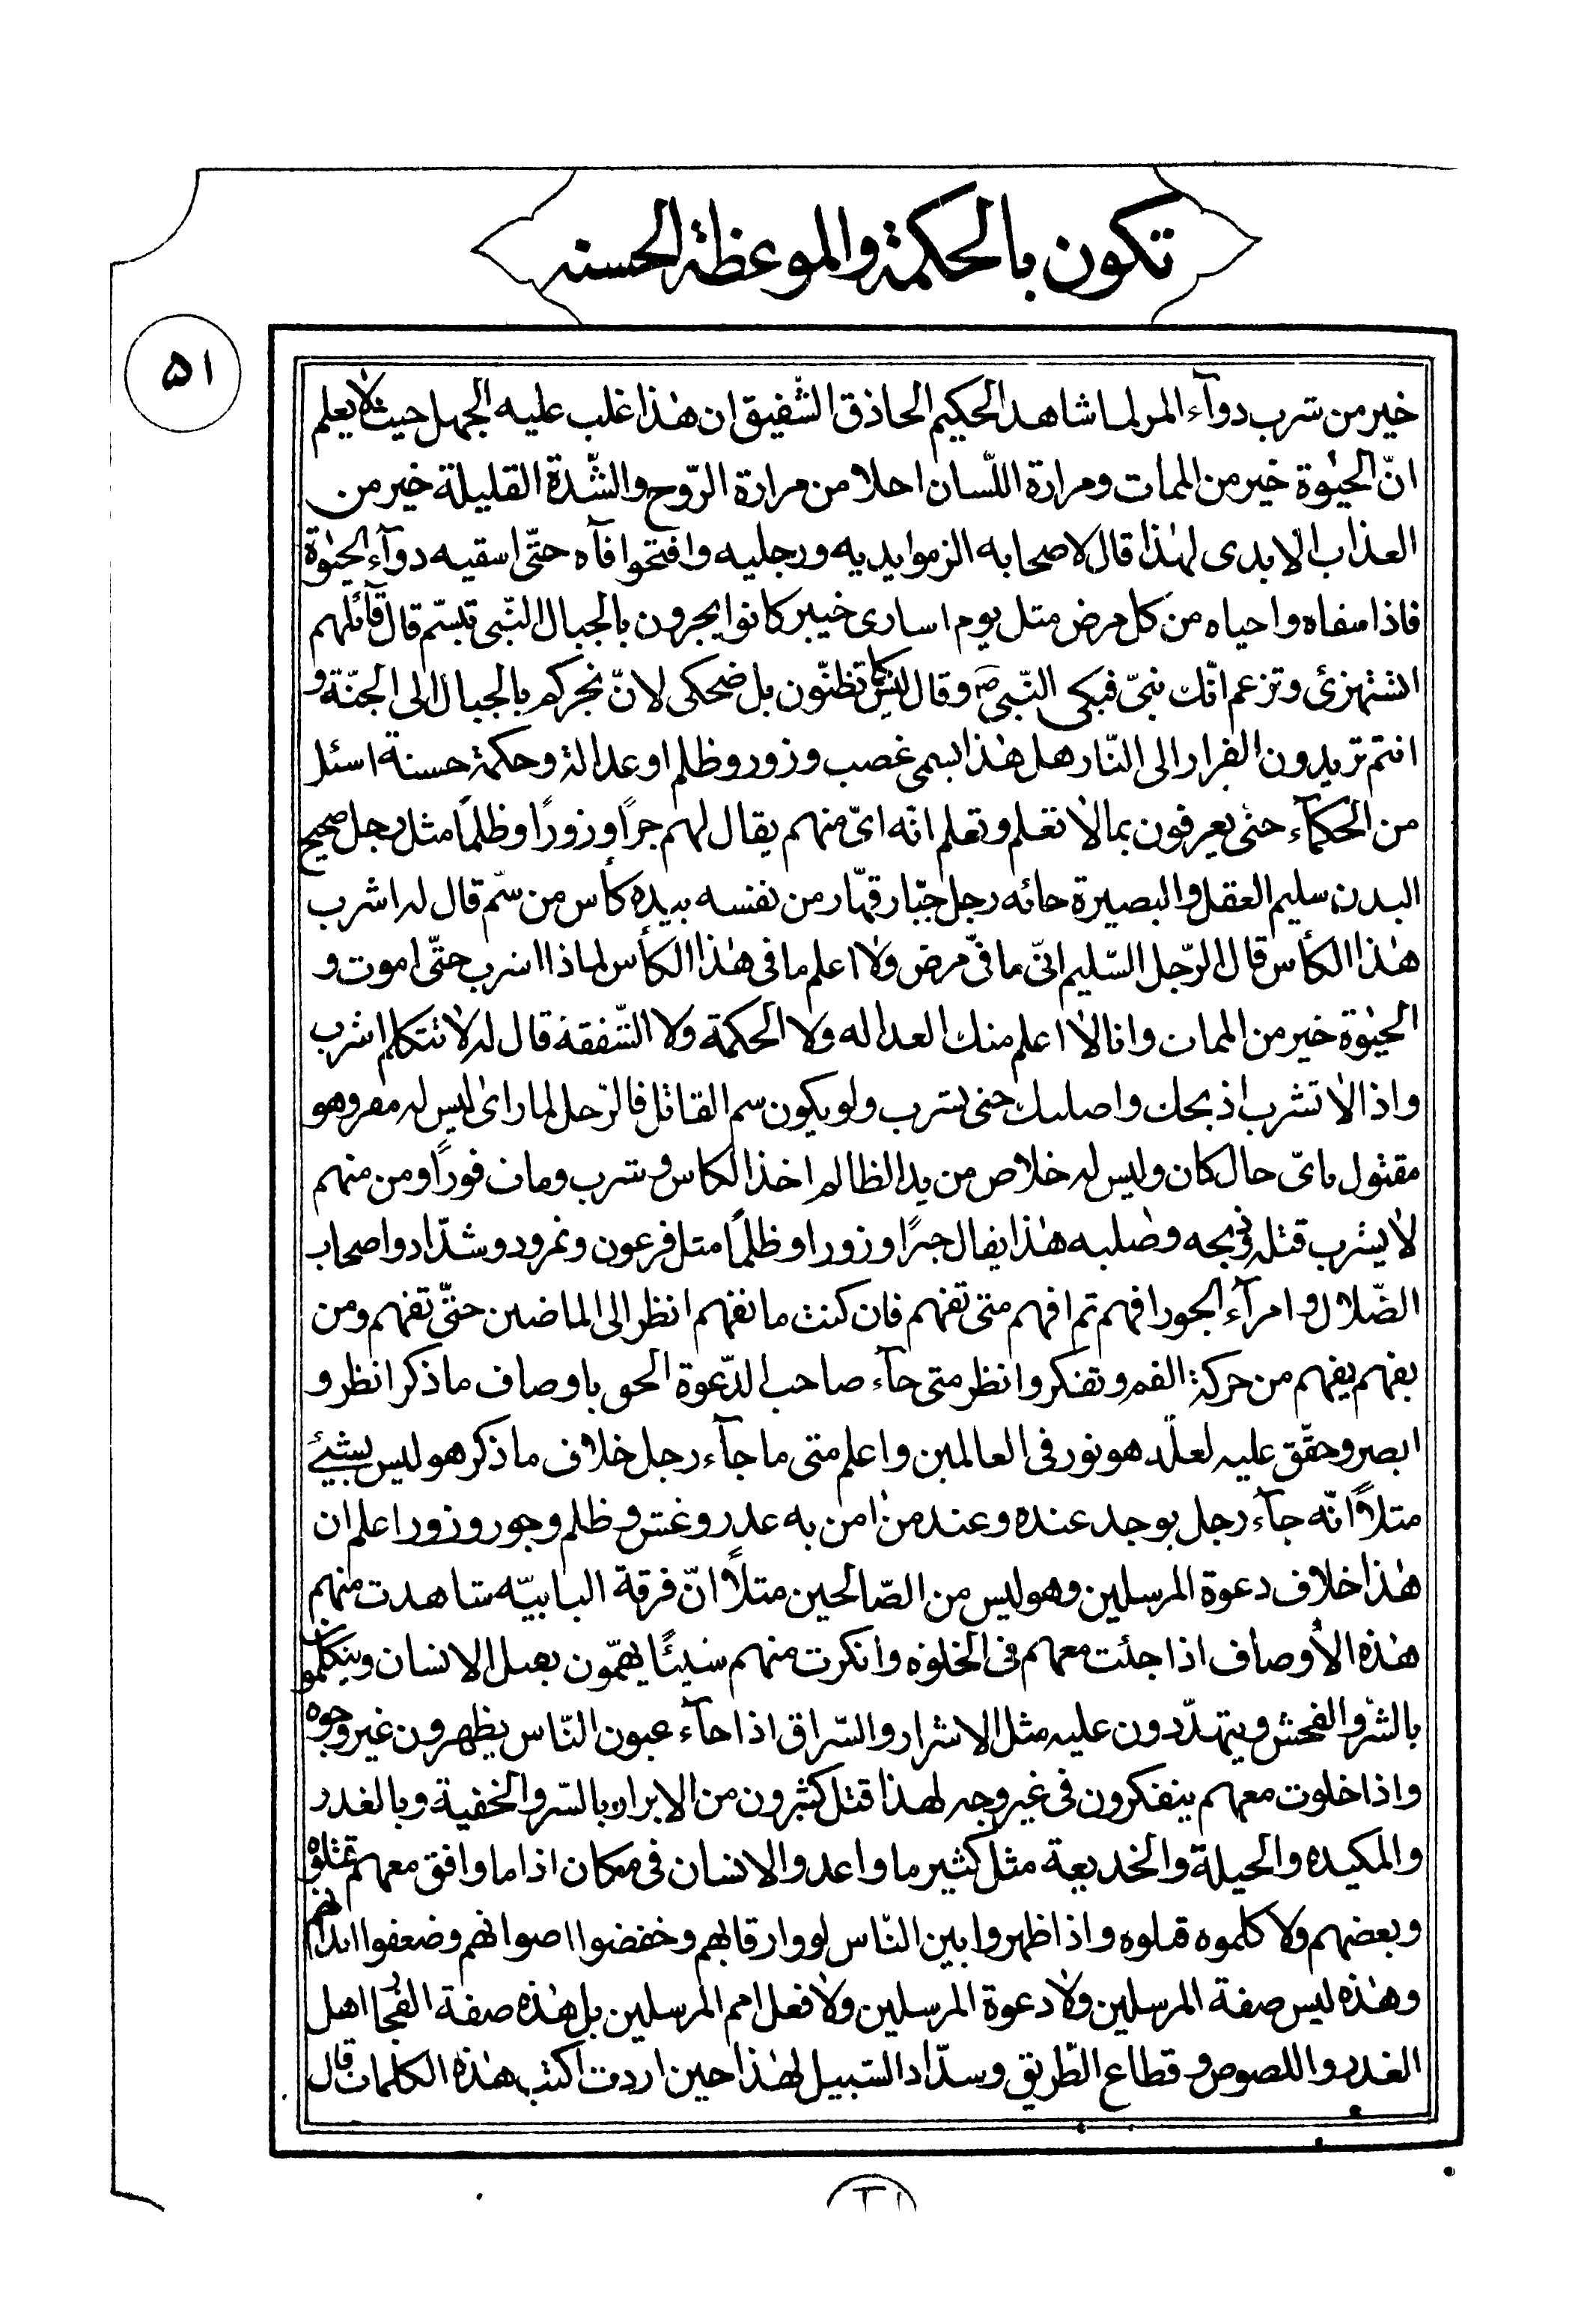 تكون بالحكمة والموعظة الحسنه
۵۱
خير من شرب دوآء المر لما شاهد الحكيم الحاذق الشّفيق ان هٰذا غلب عليه الجهل حيث لا يعلم
انّ الحيٰوة خير من الممات ومرارة اللّسان احلا من مرارة الرّوح والشّدة القليلة خير من
العذاب الابدى لهٰذا قال لاصحابه الزموا يديه ورجليه وافتحوا فآه حتّى اسقيه دوآء الحيٰوة
فاذا سقاه واحياه من كل مرض مثل يوم اسارى خيبر كانوا يجرون بالجبال النّبى تبسّم قال قآئلهم
اتشتهزئ وتزعم انّك نبىّ فبكى النّبى ص وقال ليس كما تظنّون بل ضحكى لانّ نجركم بالجبال الى الجنّة و
انتم تريدون الفرار الى النّار هل هٰذا يسمى غصب وزور وظلم او عدالة وحكمة حسنة اسئل
من الحكمآء حتٰى يعرفون بما لا تعلم وتعلم انّه اىّ منهم يقال لهم جرًا وزورًا وظلمًا مثل رجل صحيح
البدن سليم العقل والبصيرة جائه رجل جبّار قهّار من نفسه بيده كأس من سمّ قال له اشرب
هٰذا الكأس قال الرّجل السّليم انّى ما فىّ مرض ولا اعلم ما فى هٰذا الكأس لماذا اشرب حتّى اموت و
الحيٰوة خير من الممات وانا لا اعلم منك العداله ولا الحكمة ولا الشّفقة قال له لا تتكلم اشرب
واذا لا تشرب اذبحك واصلبك حتى تشرب ولو يكون سم القاتل فالرّجل لما راى ليس له مفر وهو
مقتول باىّ حال كان وليس له خلاص من يد الظالم اخذ الكاس وشرب ومات فورًا ومن منهم
لا يشرب قتله وصلبه هٰذا يقال جبرًا وزورا وظلمًا مثل فرعون ونمرود وشدّاد واصحاب
الضّلال وامرآء الجور افهم ثم افهم متى تفهم فان كنت ما تفهم انظر الى الماضين حتّى تفهم ومن
يفهم يفهم من حركة الفم وتفكر وانظر متى جآء صاحب الدّعوة الحق باوصاف ما ذكر انظر و
ابصر وحقّق عليه لعلّه هو نور فى العالمين واعلم متى ما جآء رجل خلاف ما ذكر هو ليس بشيئ
مثلاً انّه جآء رجل يوجد عنده وعند من اٰمن به غدر وغش وظلم وجور وزور اعلم ان
هٰذا خلاف دعوة المرسلين وهو ليس من الصّالحين مثلاً انّ فرقة البابيّه شاهدت منهم
هٰذه الأوصاف اذا جئت معهم فى الخلوة وانكرت منهم شيئًا يهمّون بقتل الانسان ويتكلّمون
بالشّر والفحش ويتهدّدون عليه مثل الاشرار والسّراق اذا جآء عيون النّاس يظهرون غير وجوه
واذا خلوت معهم يتفكرون فى غير وجه لهذا قتل كثيرون من الابرار بالسّر والخفية وبالغدر
والمكيده والحيلة والخديعة مثل كثير ما واعدوا الانسان فى مكان اذا ما وافق معهم قتلوه
وبعضهم ولا كلموه قتلوه واذا ظهروا بين النّاس لووا رقابهم وخفضوا اصواتهم وضعفوا ابدانهم
وهٰذه ليس صفة المرسلين ولا دعوة المرسلين ولا فعل امم المرسلين بل هٰذه صفة الفجّار اهل
الغدر واللصوص وقطاع الطّريق وسدّاد السّبيل لهٰذا حين اردت اكتب هٰذه الكلمات قال